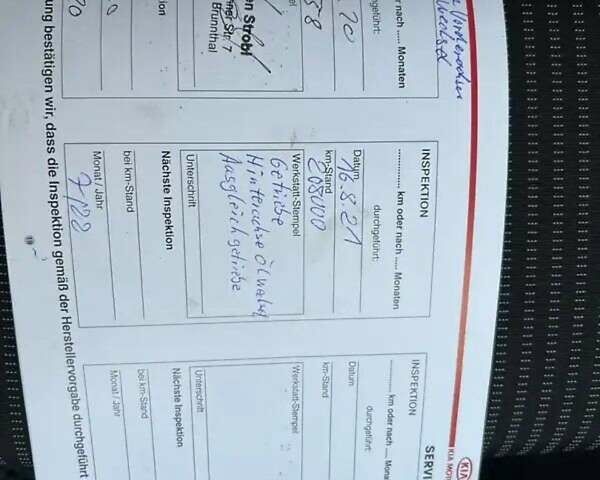 Vorderachse
km oder nach ..... Monaten
durchgeführt:
Strobl
Str. 7
Brunnthal
INSPEKTION
.................. km oder nach ..... Monaten
durchgeführt:
Datum 16.8.21
km-Stand 208000
Werkstatt-Stempel
Getriebe
Hinterachse Ölwechsel
Ausgleichgetriebe
Unterschrift
Nächste Inspektion
bei km-Stand
Monat / Jahr 7/22
SERVI
KIA
KIA MOT
INSPEKTION
.................. km oder nach ..... Monaten
durchgeführt:
Datum
km-Stand
Werkstatt-Stempel
Unterschrift
Nächste Inspektion
bei km-Stand
Monat / Jahr
ung bestätigen wir, dass die Inspektion gemäß der Herstellervorgabe durchgeführt